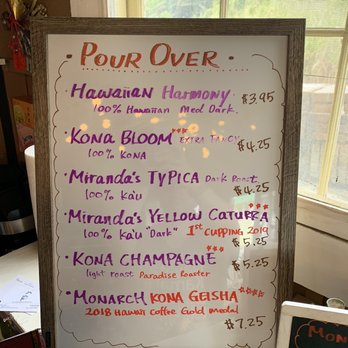 POUR OVER
Hawaiian Harmony
100% Hawaiian Med Dark. $3.95
KONA BLOOM *** EXTRA FANCY
100% KONA $4.25
Miranda's TYPICA Dark Roast
100% KA'U $4.25
Miranda's YELLOW CATURRA
100% KA'U "Dark" 1ST CUPPING 2019
$5.25
KONA CHAMPAGNE ***
light roast Paradise Roaster $5.25
MONARCH KONA GEISHA ****
2018 Hawaii Coffee Gold medal
$7.25